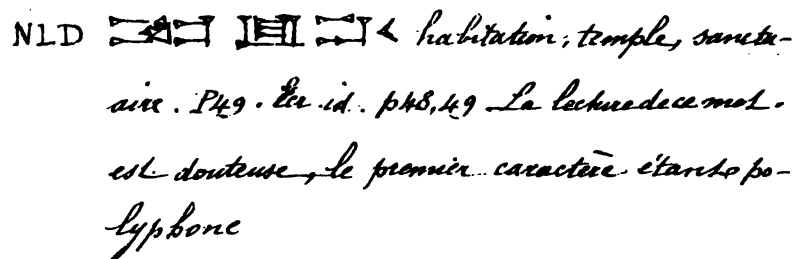 NLD habitation, temple, sanctu-
aire. P49. Ecr. id. p48,49 La lecture de ce mot.
est douteuse, le premier caractère étant po-
lyphone